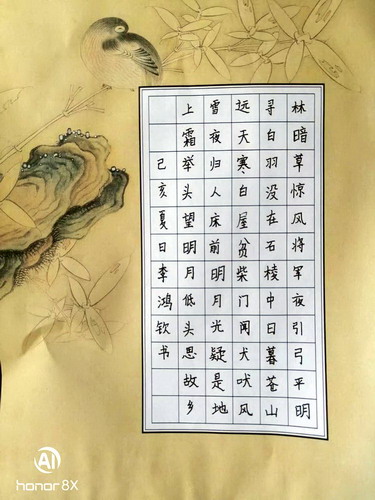 林暗草惊风将军夜引弓平明
寻白羽没在石棱中日暮苍山
远天寒白屋贫柴门闻犬吠风
雪夜归人床前明月光疑是地
上霜举头望明月低头思故乡
己亥夏日李鸿钦书
AI
honor 8X